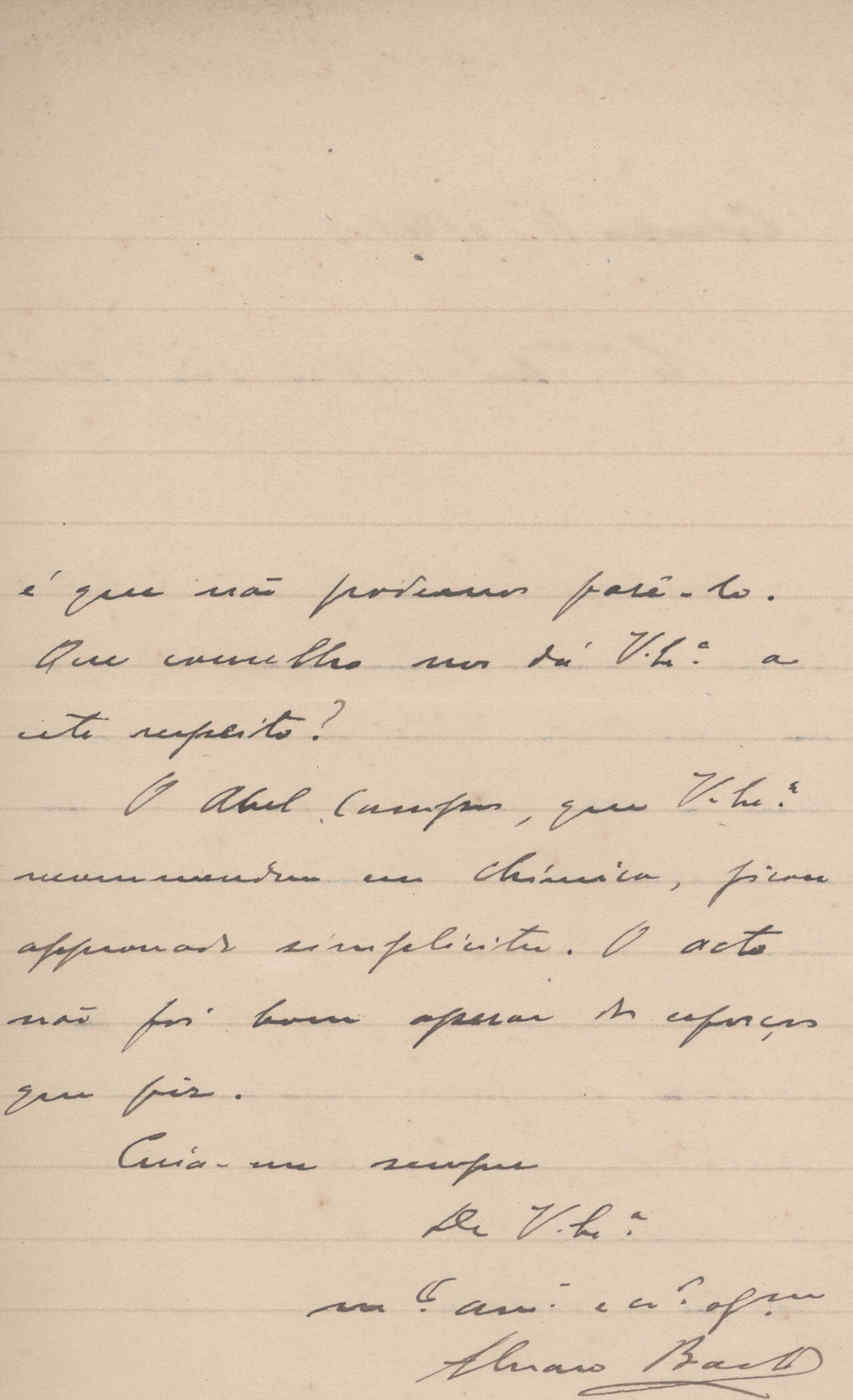 é que não podemos fasê-lo.
Que conselho nos dá V. Ex.ª a
este respeito?
O Abel Campos, que V. Ex.ª
recommendou em chimica, ficou
approvado simpliciter. O acto
não foi bom apesar dos esforços
que fiz.
Creia-me sempre
De V. Ex.ª
m.to am.º e cr.º obg.mo
Alvaro Basto